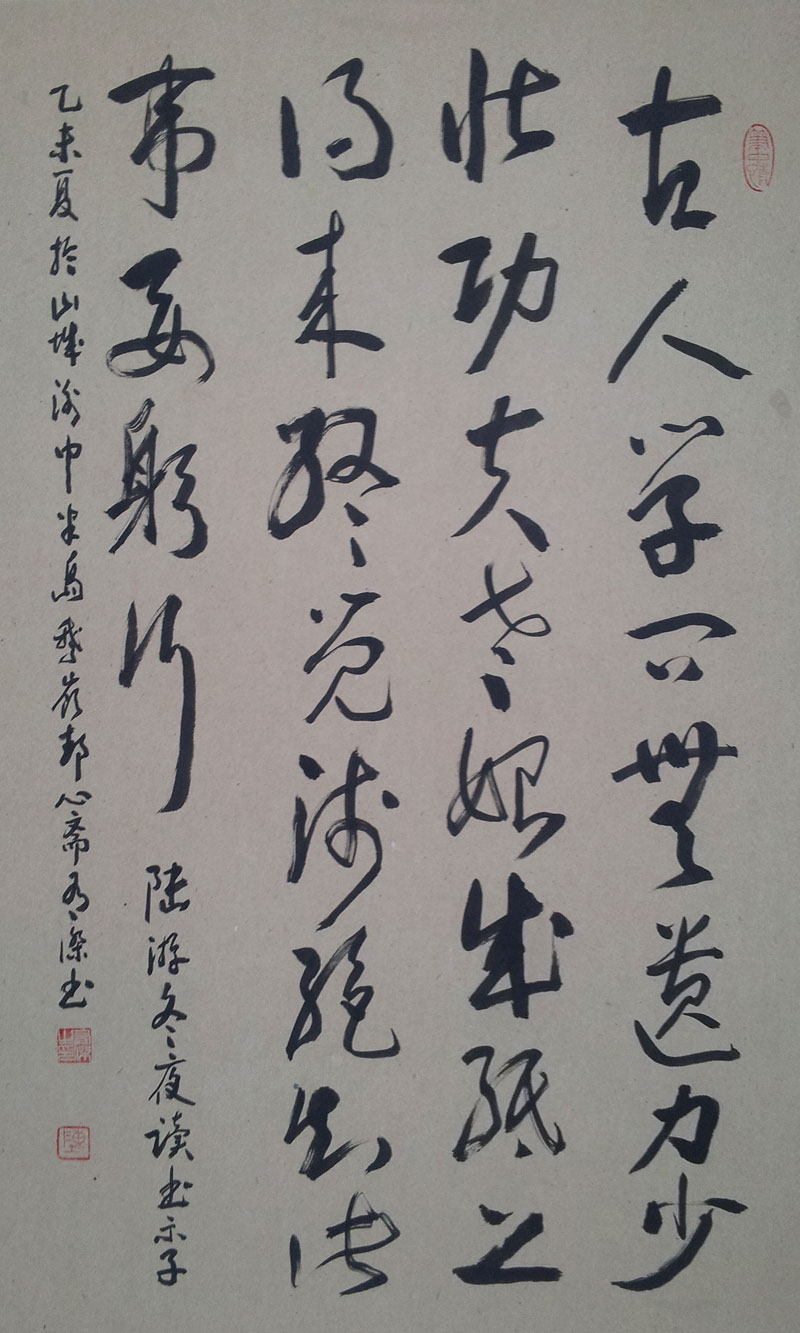 古人学问無遗力少
壮功夫老始成纸上
得来终觉浅绝知此
事要躬行 陆游冬夜读书示子
乙未夏於山城渝中半岛鹅岭心斋书